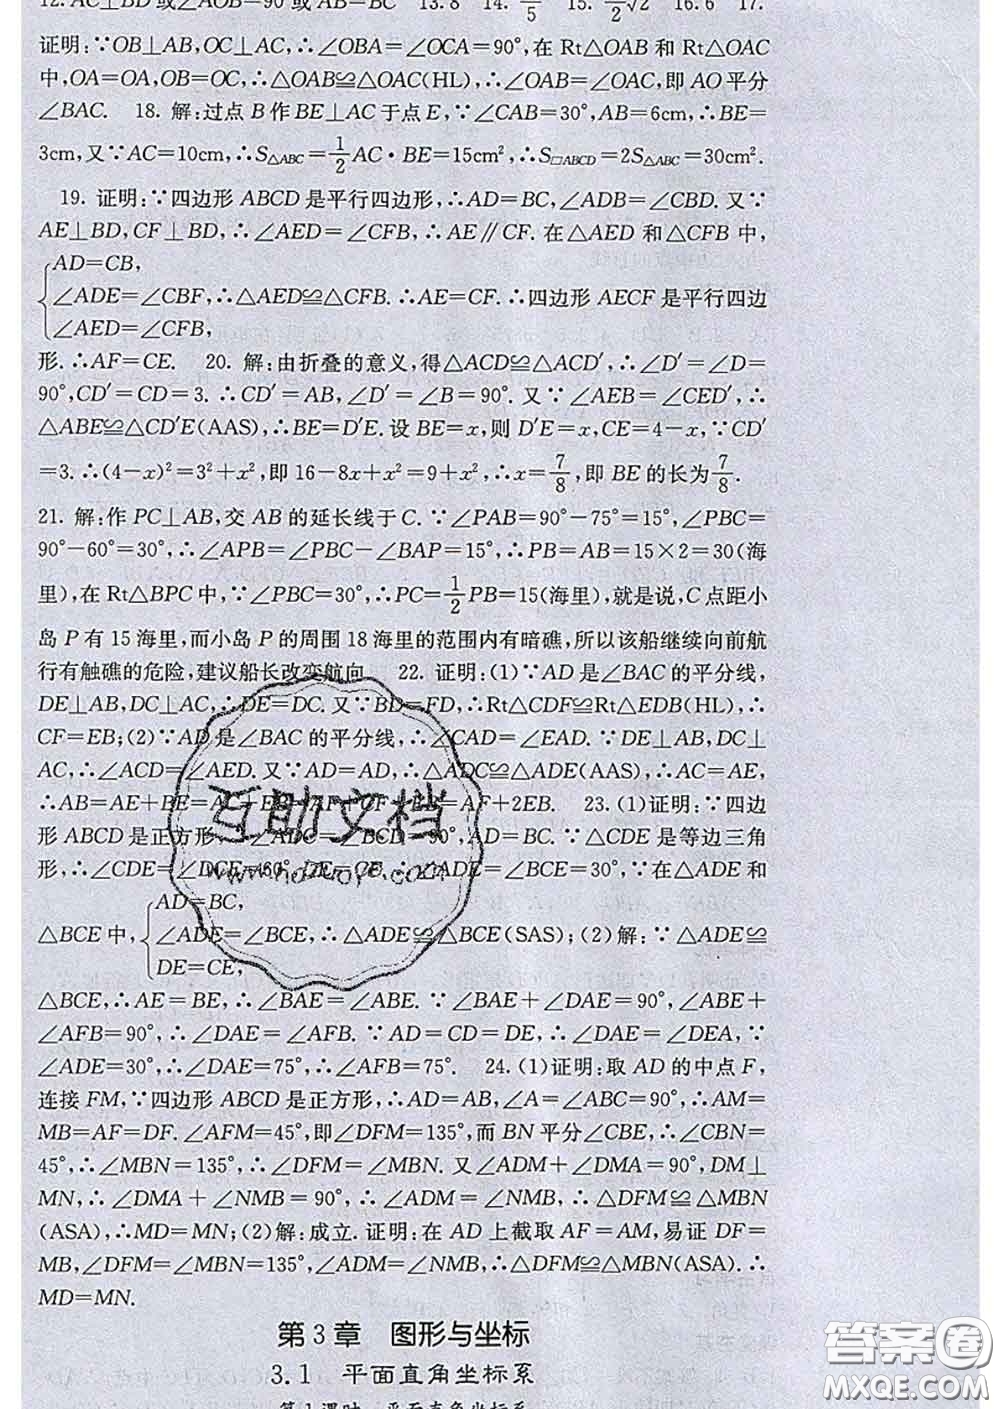 12. AC⊥BD或∠AOB=90°或AB=BC 13.8 14. /5 15. /2√2 16.6 17.
证明:∵OB⊥AB,OC⊥AC,∴∠OBA=∠OCA=90°,在 Rt△OAB 和 Rt△OAC
中,OA=OA,OB=OC,∴△OAB≌△OAC(HL),∴∠OAB=∠OAC,即 AO 平分
∠BAC. 18. 解:过点 B 作 BE⊥AC 于点 E,∵∠CAB=30°,AB=6cm,∴BE=
3cm,又∵AC=10cm,∴S△ABC=1/2AC·BE=15cm²,∴S□ABCD=2S△ABC=30cm².
19. 证明:∵四边形 ABCD 是平行四边形,∴AD=BC,∠ADB=∠CBD. 又∵
AE⊥BD,CF⊥BD,∴∠AED=∠CFB,∴AE∥CF. 在△AED 和△CFB 中,
AD=CB,
∠ADE=∠CBF,∴△AED≌△CFB.∴AE=CF.∴四边形 AECF 是平行四边
∠AED=∠CFB,
形.∴AF=CE. 20. 解:由折叠的意义,得△ACD≌△ACD′,∴∠D′=∠D=
90°,CD′=CD=3.∴CD′=AB,∠D′=∠B=90°. 又∵∠AEB=∠CED′,∴
△ABE≌△CD′E(AAS),∴BE=D′E. 设 BE=x,则 D′E=x,CE=4-x,∵CD′
=3.∴(4-x)²=3²+x²,即 16-8x+x²=9+x²,∴x=7/8,即 BE 的长为7/8.
21. 解:作 PC⊥AB,交 AB 的延长线于 C.∵∠PAB=90°-75°=15°,∠PBC=
90°-60°=30°,∴∠APB=∠PBC-∠BAP=15°,∴PB=AB=15×2=30(海
里),在 Rt△BPC 中,∵∠PBC=30°,∴PC=1/2PB=15(海里),就是说,C 点距小
岛 P 有 15 海里,而小岛 P 的周围 18 海里的范围内有暗礁,所以该船继续向前航
行有触礁的危险,建议船长改变航向. 22. 证明:(1)∵AD 是∠BAC 的平分线,
DE⊥AB,DC⊥AC,∴DE=DC. 又∵BD=FD,∴Rt△CDF≌Rt△EDB(HL),∴
CF=EB;(2)∵AD 是∠BAC 的平分线,∴∠CAD=∠EAD.∵DE⊥AB,DC⊥
AC,∴∠ACD=∠AED. 又∵AD=AD,∴△ADC≌△ADE(AAS),∴AC=AE,
∴AB=AE+BE=AC+EB=AF+CF+EB=AF+2EB. 23. (1)证明:∵四边
形 ABCD 是正方形,∴∠ADC=∠BCD=90°,AD=BC.∵△CDE 是等边三角
形,∴∠CDE=∠DCE=60°,DE=CE,∴∠ADE=∠BCE,∵在△ADE 和
AD=BC,
△BCE 中,∠ADE=∠BCE,∴△ADE≌△BCE(SAS);(2)解:∵△ADE≌
DE=CE,
△BCE,∴AE=BE,∴∠BAE=∠ABE.∵∠BAE+∠DAE=90°,∠ABE+
∠AFB=90°,∴∠DAE=∠AFB.∵AD=CD=DE,∴∠DAE=∠DEA,∵
∠ADE=30°,∴∠DAE=75°,∴∠AFB=75°. 24. (1)证明:取 AD 的中点 F,
连接 FM,∵四边形 ABCD 是正方形,∴AD=AB,∠A=∠ABC=90°,∴AM=
MB=AF=DF.∠AFM=45°,即∠DFM=135°,而 BN 平分∠CBE,∴∠CBN=
45°,∴∠MBN=135°,∴∠DFM=∠MBN. 又∠ADM+∠DMA=90°,DM⊥
MN,∴∠DMA+∠NMB=90°,∴∠ADM=∠NMB,∴△DFM≌△MBN
(ASA),∴MD=MN;(2)解:成立. 证明:在 AD 上截取 AF=AM,易证 DF=
MB,∠DFM=∠MBN=135°,∠ADM=∠NMB,∴△DFM≌△MBN(ASA).∴
MD=MN.
第 3 章 图形与坐标
3.1 平面直角坐标系
第 1 课时 平面直角坐标系
互助文档
答案圈
MXQE.COM